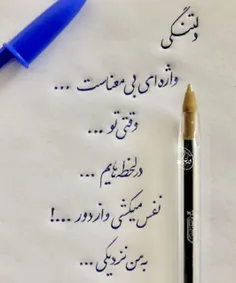 دلتنگی
واژه ای بی معناست ...
وقتی تو ...
در لحظه هایم ...
نفس میکشی و از دور ...!
به من نزدیکی ...